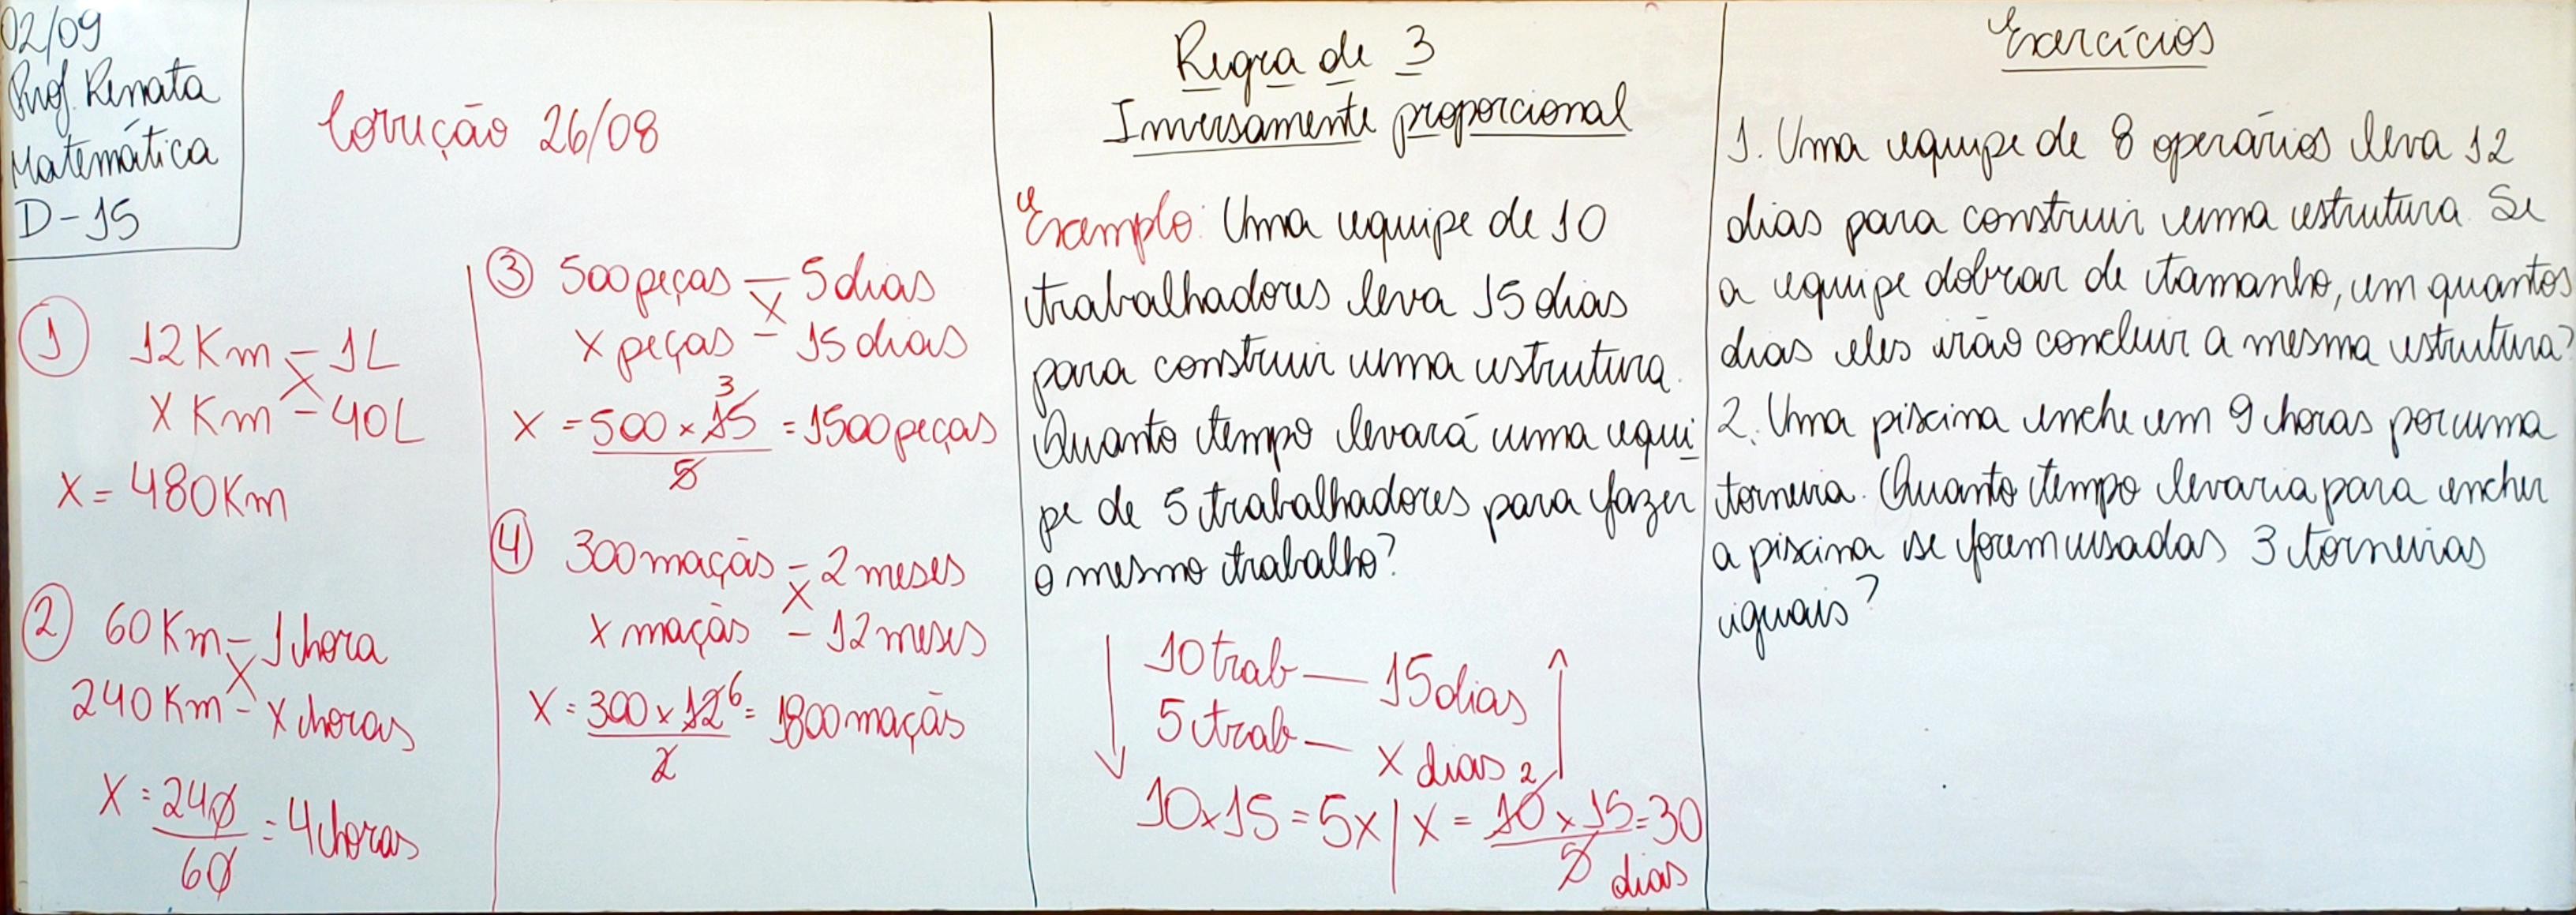 02/09
Prof. Renata
Matemática
D-15
Correção 26/08
① 12Km - 1L
X Km - 40L
X = 480Km
② 60Km - 1hora
240Km - X horas
X = 240/60 = 4horas
③ 500peças - 5dias
X peças - 15dias
3
X = 500 × 15/5 = 1500peças
④ 300maçãs - 2meses
X maçãs - 12meses
X = 300 × 12⁶/2 = 1800maçãs
Regra de 3
Inversamente proporcional
Exemplo: Uma equipe de 10
trabalhadores leva 15 dias
para construir uma estrutura.
Quanto tempo levará uma equi
pe de 5 trabalhadores para fazer
o mesmo trabalho?
↓ 10trab — 15dias ↑
5trab — X dias
2
10×15 = 5X | X = 10 × 15/5 = 30
dias
Exercícios
1. Uma equipe de 8 operários leva 12
dias para construir uma estrutura. Se
a equipe dobrar de tamanho, em quantos
dias eles irão concluir a mesma estrutura?
2. Uma piscina enche em 9 horas por uma
torneira. Quanto tempo levaria para encher
a piscina se forem usadas 3 torneiras
iguais?